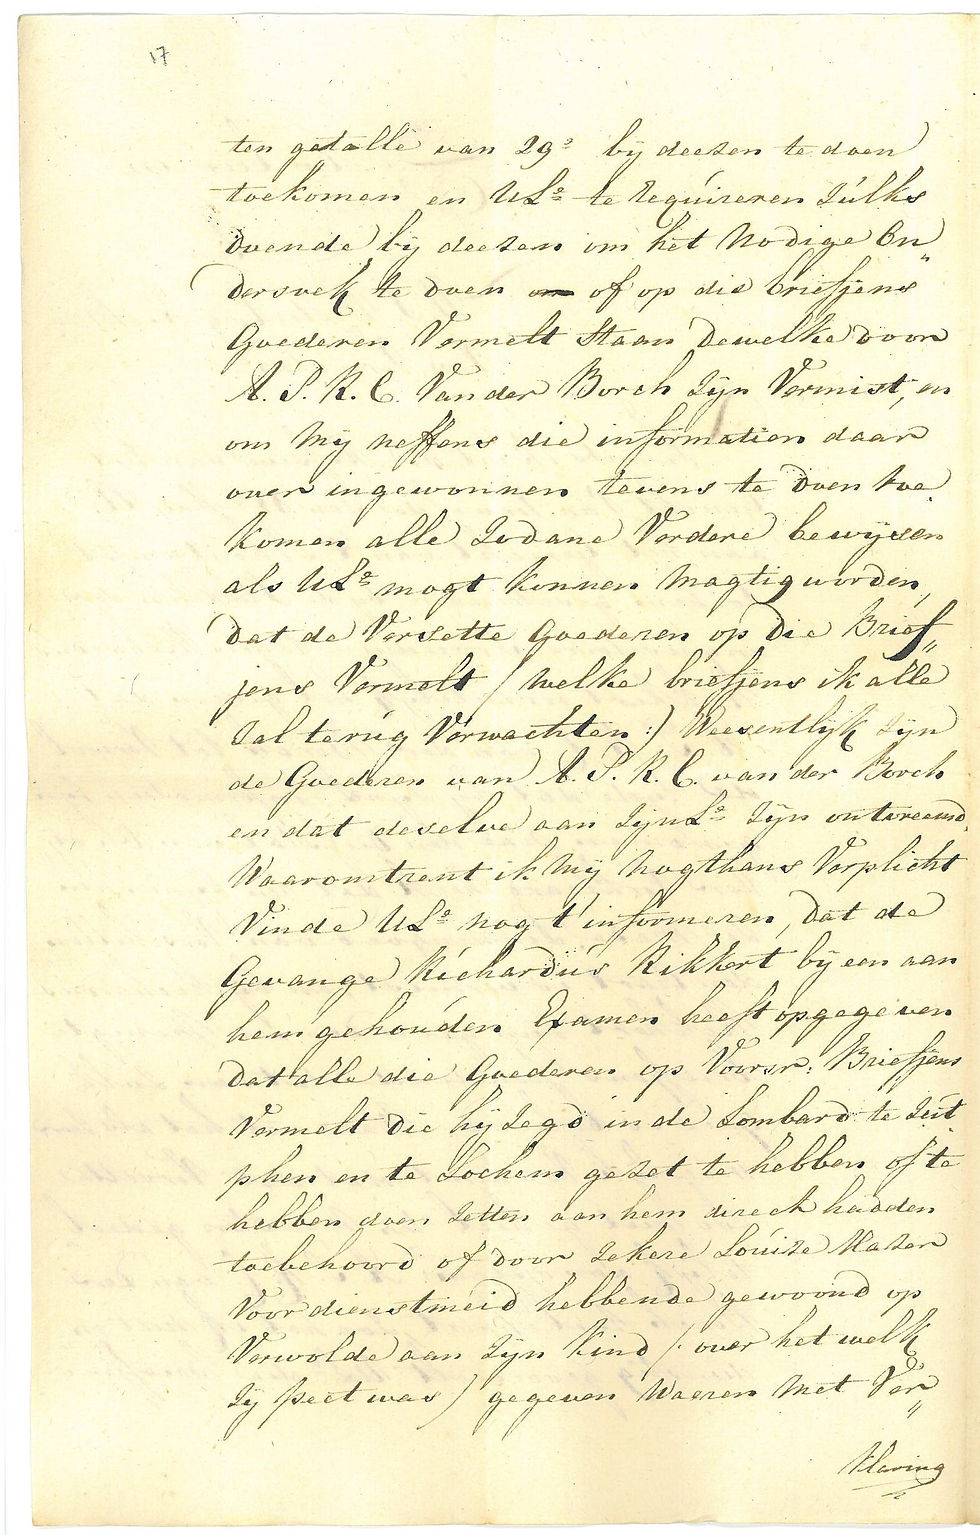 17
ten getalle van 29s bij deezen te doen
toekomen en ULs te requireren Zulks
doende bij deezen om het nodige On„
dersoek te doen om of op die briefjens
Goederen Vermelt Staan dewelke door
A. P. R. C. Van der Borch Zijn Vermist, en
om Mij neffens die informatien daar
over ingewonnen tevens te doen toe
komen alle Zodane Verdere bewijsen
als ULs mogt konnen Magtig worden,
dat de Versette Goederen op die Brief„
jens Vermelt / welke briefjens ik alle
Zal terúg Verwachten :) Weesentlijk Zijn
de Goederen van A. P. R. C. van der Borch
en dat deselve aan ZijnLs Zijn ontvreemd,
Waaromtrent ik Mij nogthans Verplicht
Vinde ULs nog t' informeren, dat de
Gevange Richardús Rikkert bij een aan
hem gehoúden Examen heeft opgegeven
dat alle die Goederen op Voorsr: Briefjens
Vermelt die hij Zegd in de Lombard te Zút
phen en te Lochem gezet te hebben of te
hebben doen Zetten aan hem direct hadden
toebehoord of door Zekere Loúize Mazer
Voor dienstmeid hebbende gewoond op
Verwolde aan Zijn Kind (: over het welk
Zij peet was) gegeven Waeren Met Ver„
Klaring